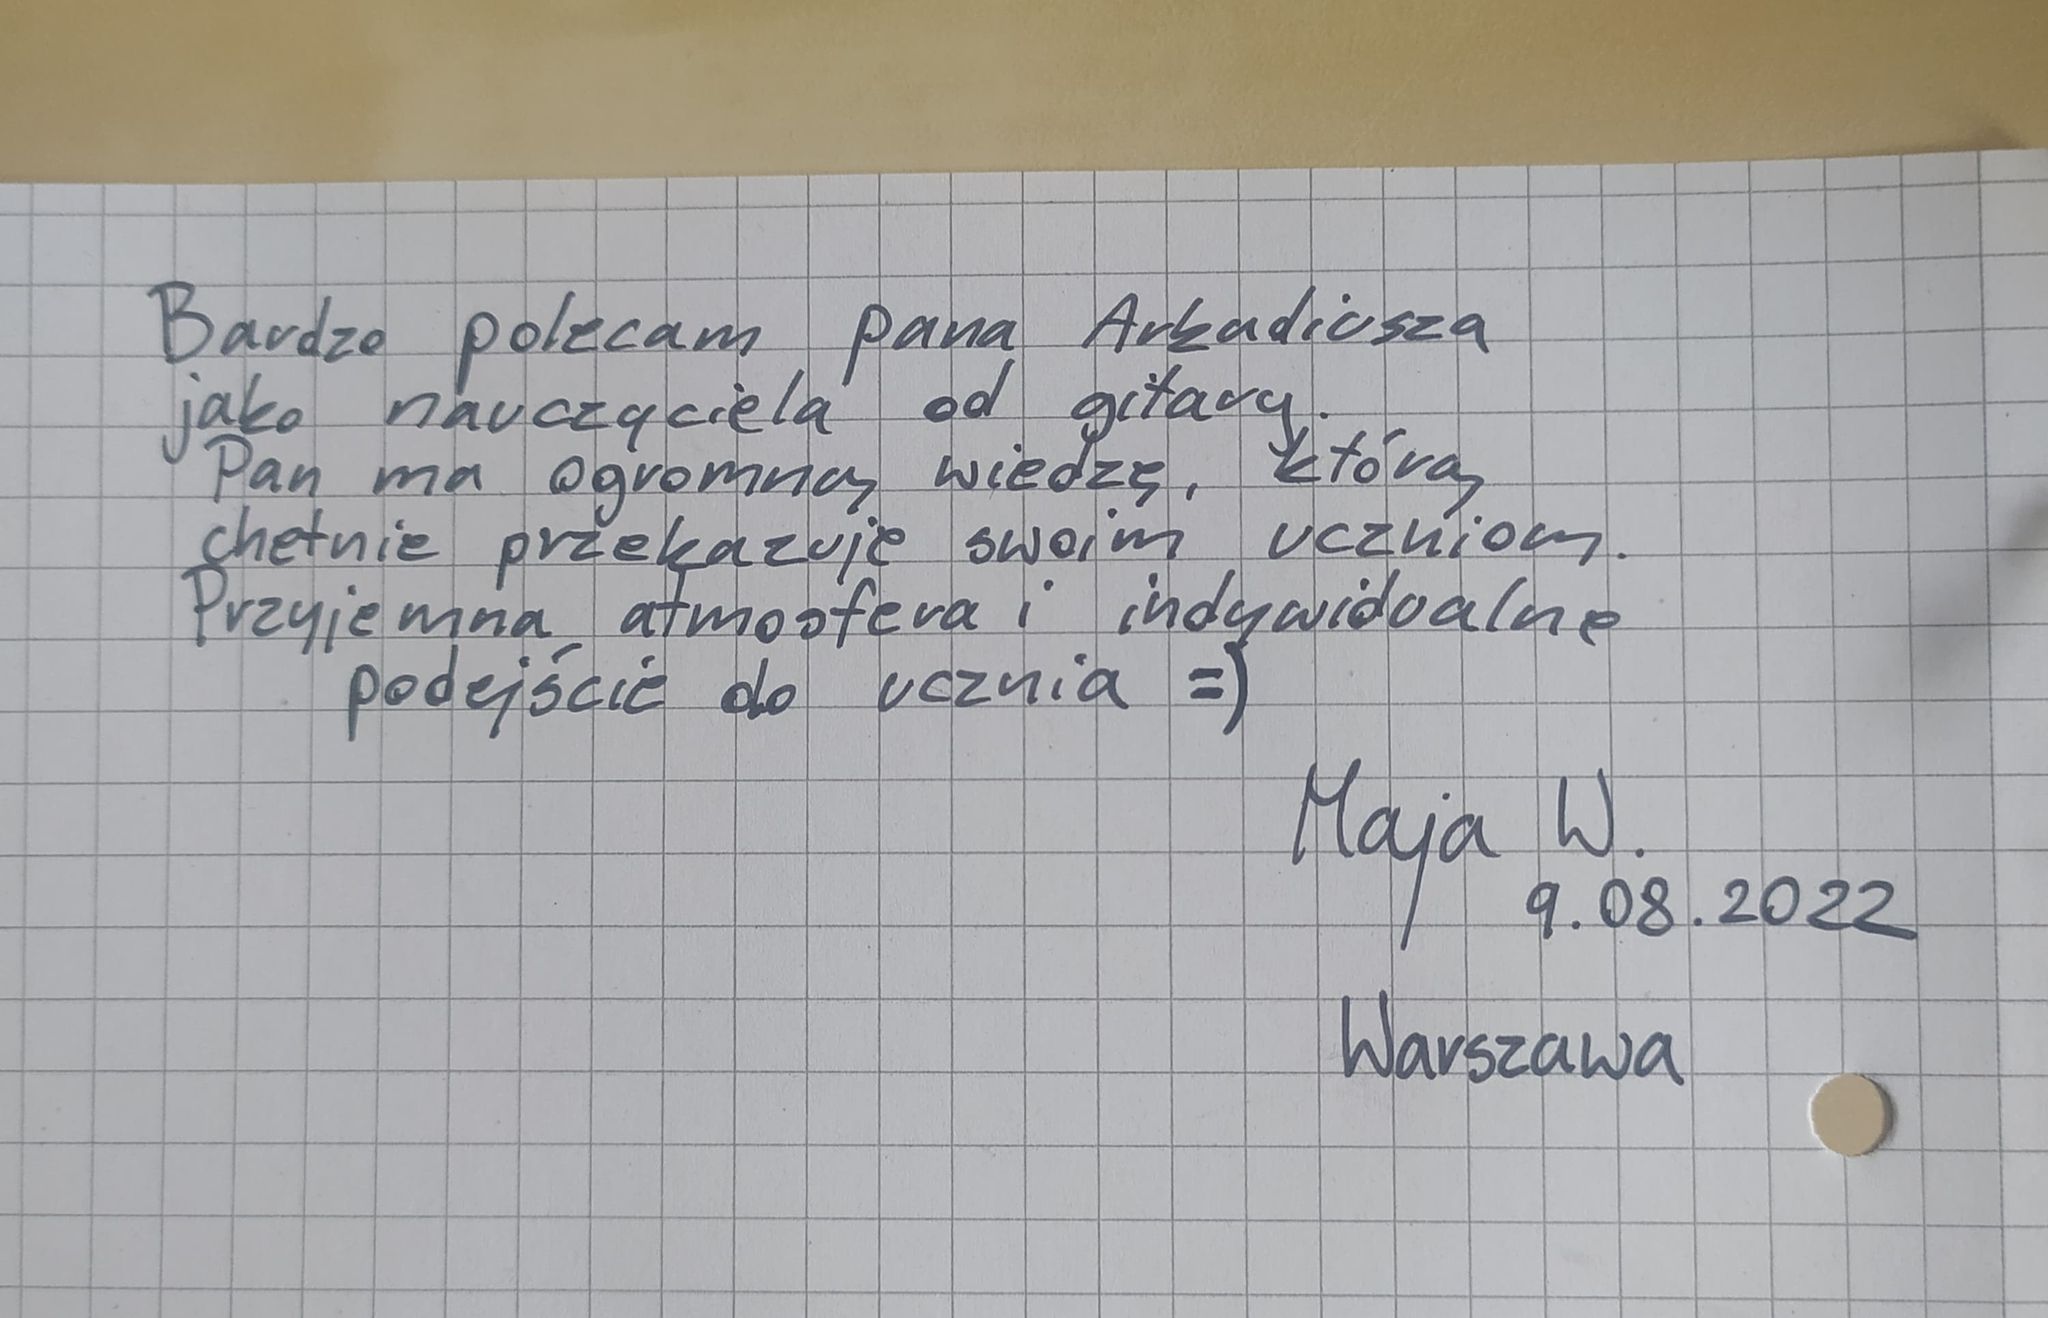 Bardzo polecam pana Arkadiusza
jako nauczyciela od gitary.
Pan ma ogromną wiedzę, którą
chętnie przekazuje swoim uczniom.
Przyjemna atmosfera i indywidualne
podejście do ucznia =)
Maja W.
9.08.2022
Warszawa